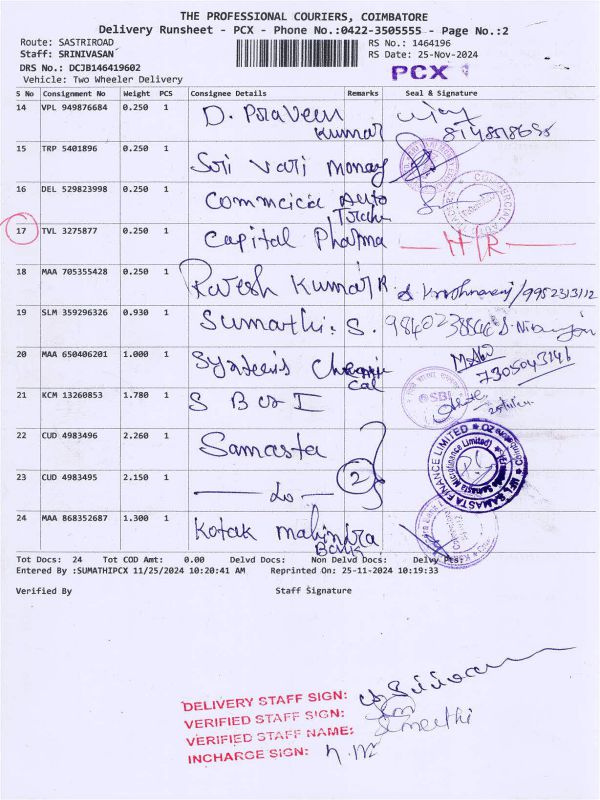 THE PROFESSIONAL COURIERS, COIMBATORE
Delivery Runsheet - PCX - Phone No.:0422-3505555 - Page No.:2
Route: SASTRIROAD
RS No.: 1464196
Staff: SRINIVASAN
RS Date: 25-Nov-2024
DRS No.: DCJB146419602
PCX
Vehicle: Two Wheeler Delivery
S No Consignment No Weight PCS Consignee Details Remarks Seal & Signature
14 VPL 949876684 0.250 1 D. Praveen Kumar
15 TRP 5401896 0.250 1 Sri Vari Money
16 DEL 529823998 0.250 1 Auto
17 TVL 3275877 0.250 1 Capital Pharma
18 MAA 705355428 0.250 1 Kumar R. 9952313112
19 SLM 359296326 0.930 1 Sumathi. S.
20 MAA 650406201 1.000 1 7305043146
21 KCM 13260853 1.780 1 S B I SBI
22 CUD 4983496 2.260 1 Samasta
SAMASTA FINANCE LIMITED
23 CUD 4983495 2.150 1 do 2
24 MAA 868352687 1.300 1 Kotak Mahindra Bank
Tot Docs: 24 Tot COD Amt: 0.00 Delvd Docs: Non Delvd Docs: Delvy Pts:
Entered By :SUMATHIPCX 11/25/2024 10:20:41 AM Reprinted On: 25-11-2024 10:19:33
Verified By Staff Signature
DELIVERY STAFF SIGN:
VERIFIED STAFF SIGN:
VERIFIED STAFF NAME: Sumathi
INCHARGE SIGN: